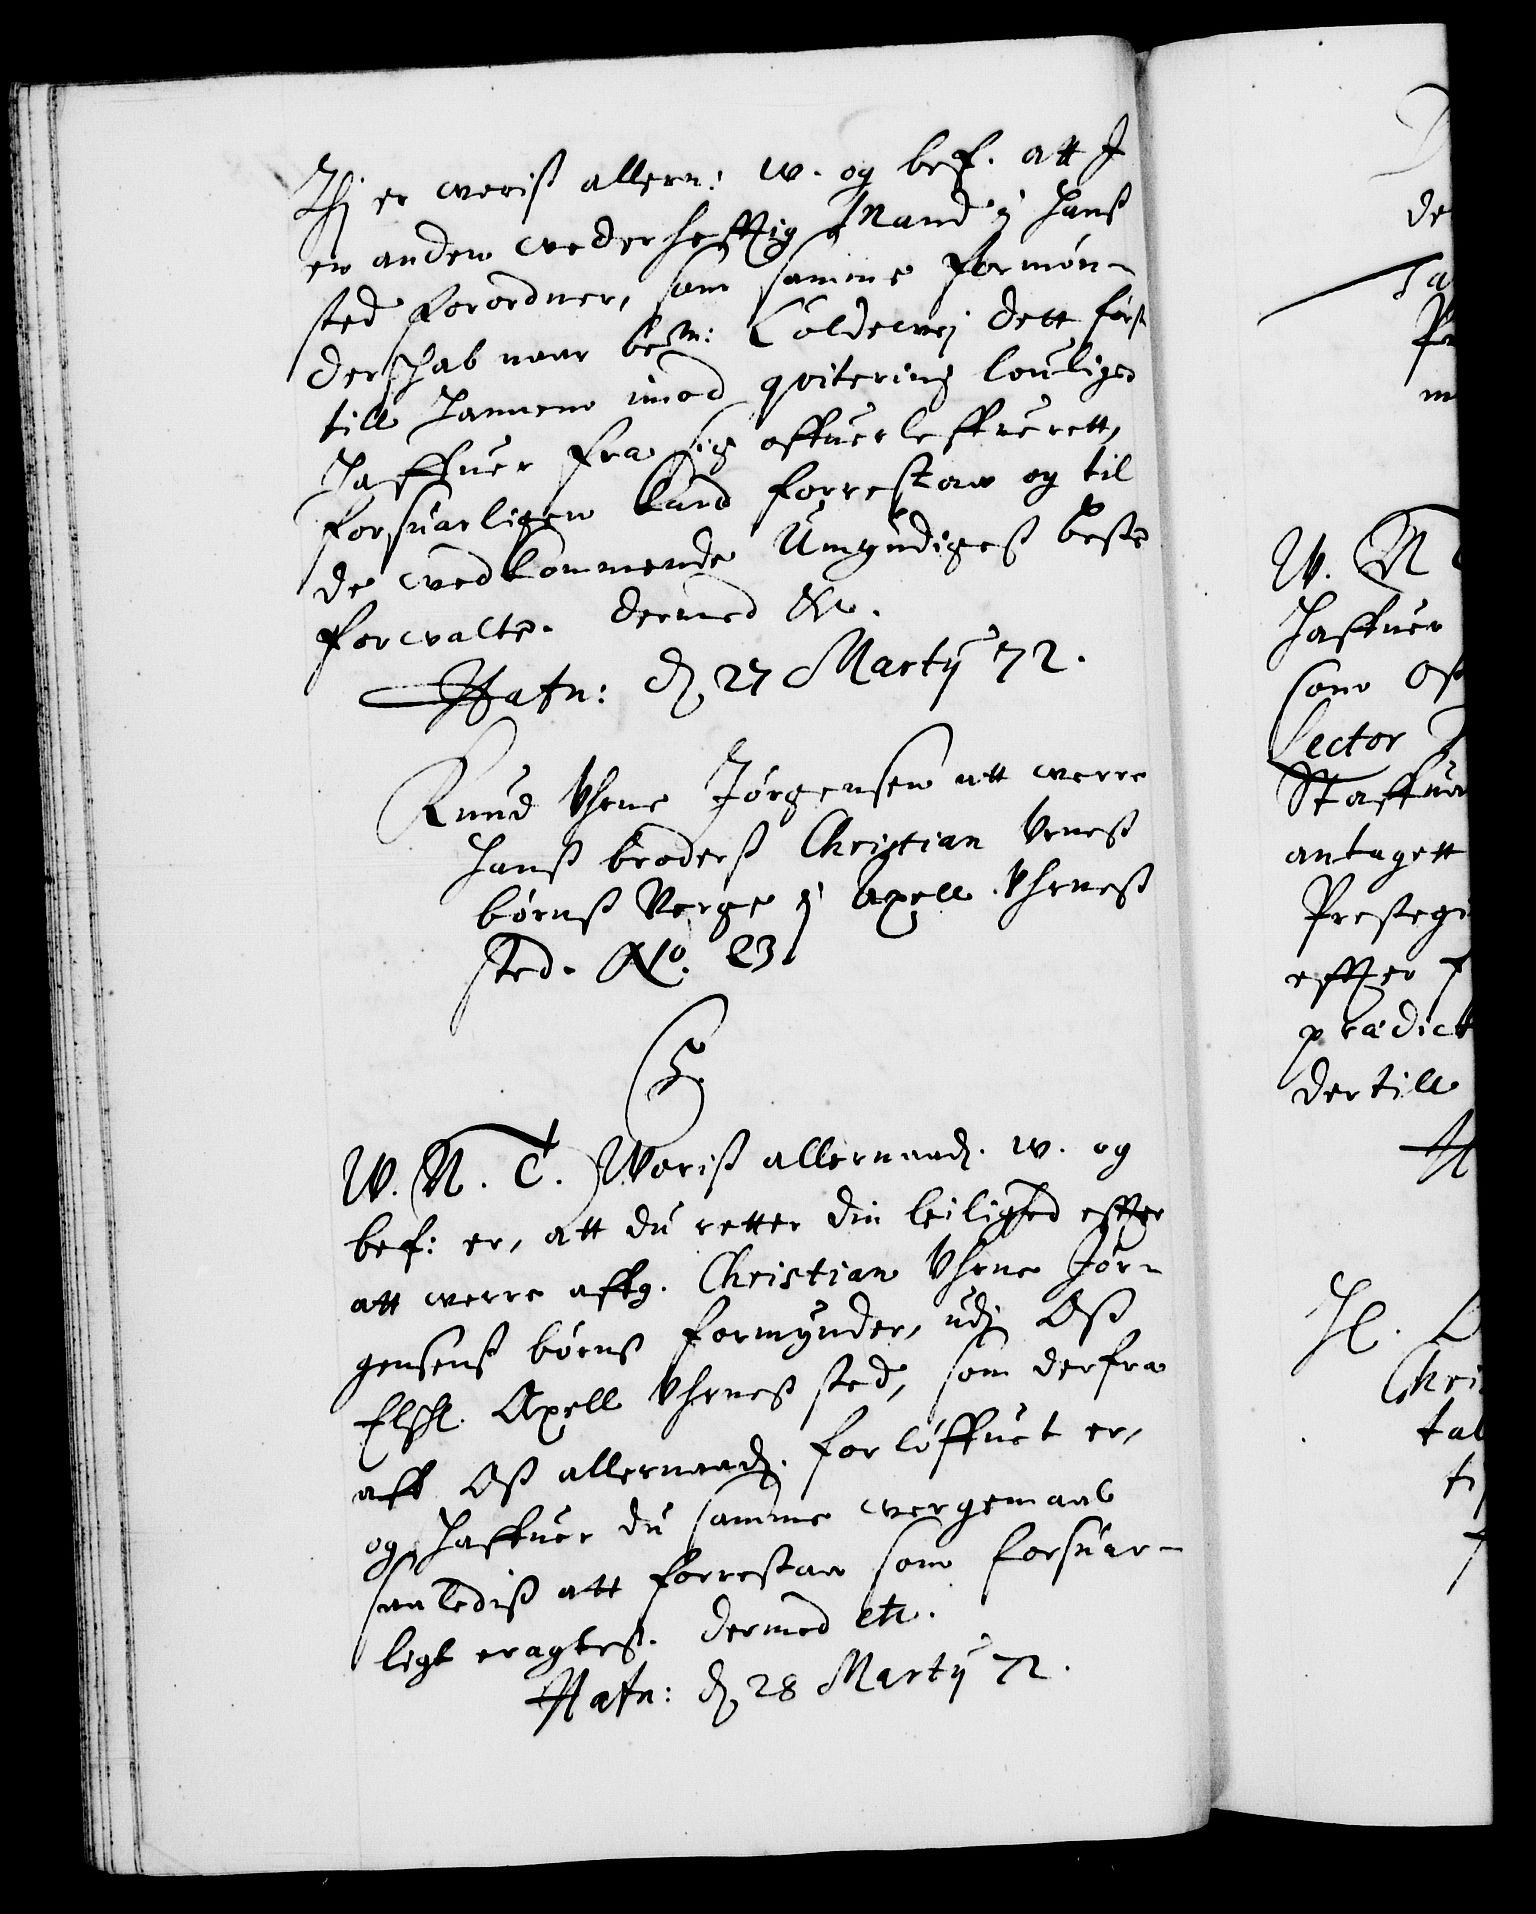 Thj er voris allern: w. og bef. att I
en anden vederhefftig Mand i hans
sted forordner, som samme formøn-
derschab naar bem: Coldevej dett først
till hannem imod qvitering louligen
haffuer fra sig offuerleffverett,
forsuarligen kand forrestaa og til
de vedkommende Umyndiges beste
forvalte. dermed etc.
Hafn: d. 27 Martij 72.
Knud Uhrne Jørgensen att verre
hans broders Christian Urnes
børns Verge i Axell Uhrnes
sted. No. 23.
C5.
W. N. T. Voris allernaad. w. og
bef: er, att du retter din leilighed effter
att verre affg. Christian Uhrne Jør-
gensens børns formynder, udj Os
Elskl. Axell Uhrnes sted, som derfra
aff Os allernaad. forløffuet er,
og haffuer du samme vergemaal
saaledis att forrestaa som forsuar-
ligt eragtes. dermed etc.
Hafn: d. 28 Martij 72.
de
W. N
haffuer
som Os
Lector
Staffua
antagett
Prestegi
effter
prædick
dertill
H
Chri
tal